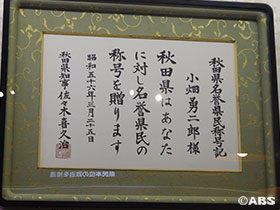 秋田県名誉県民称号記
小畑勇二郎様
秋田県はあなた
に対し名誉県民の
称号を贈ります
昭和五十六年三月二十五日
秋田県知事佐々木喜久治
©ABS